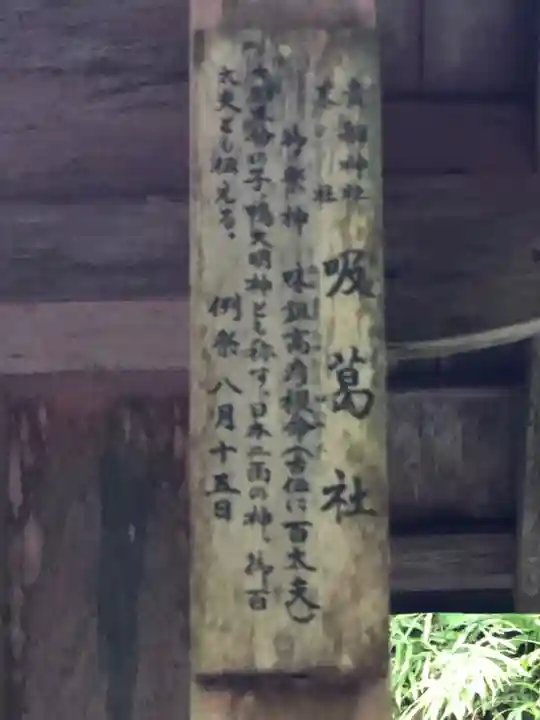 貴船神社
末社
吸葛社
御祭神 味鉏高彦根命(古伝に百太夫)
の子、鴨大明神とも称す、日本二面の神、御百
太夫とも伝える。 例祭 八月十五日